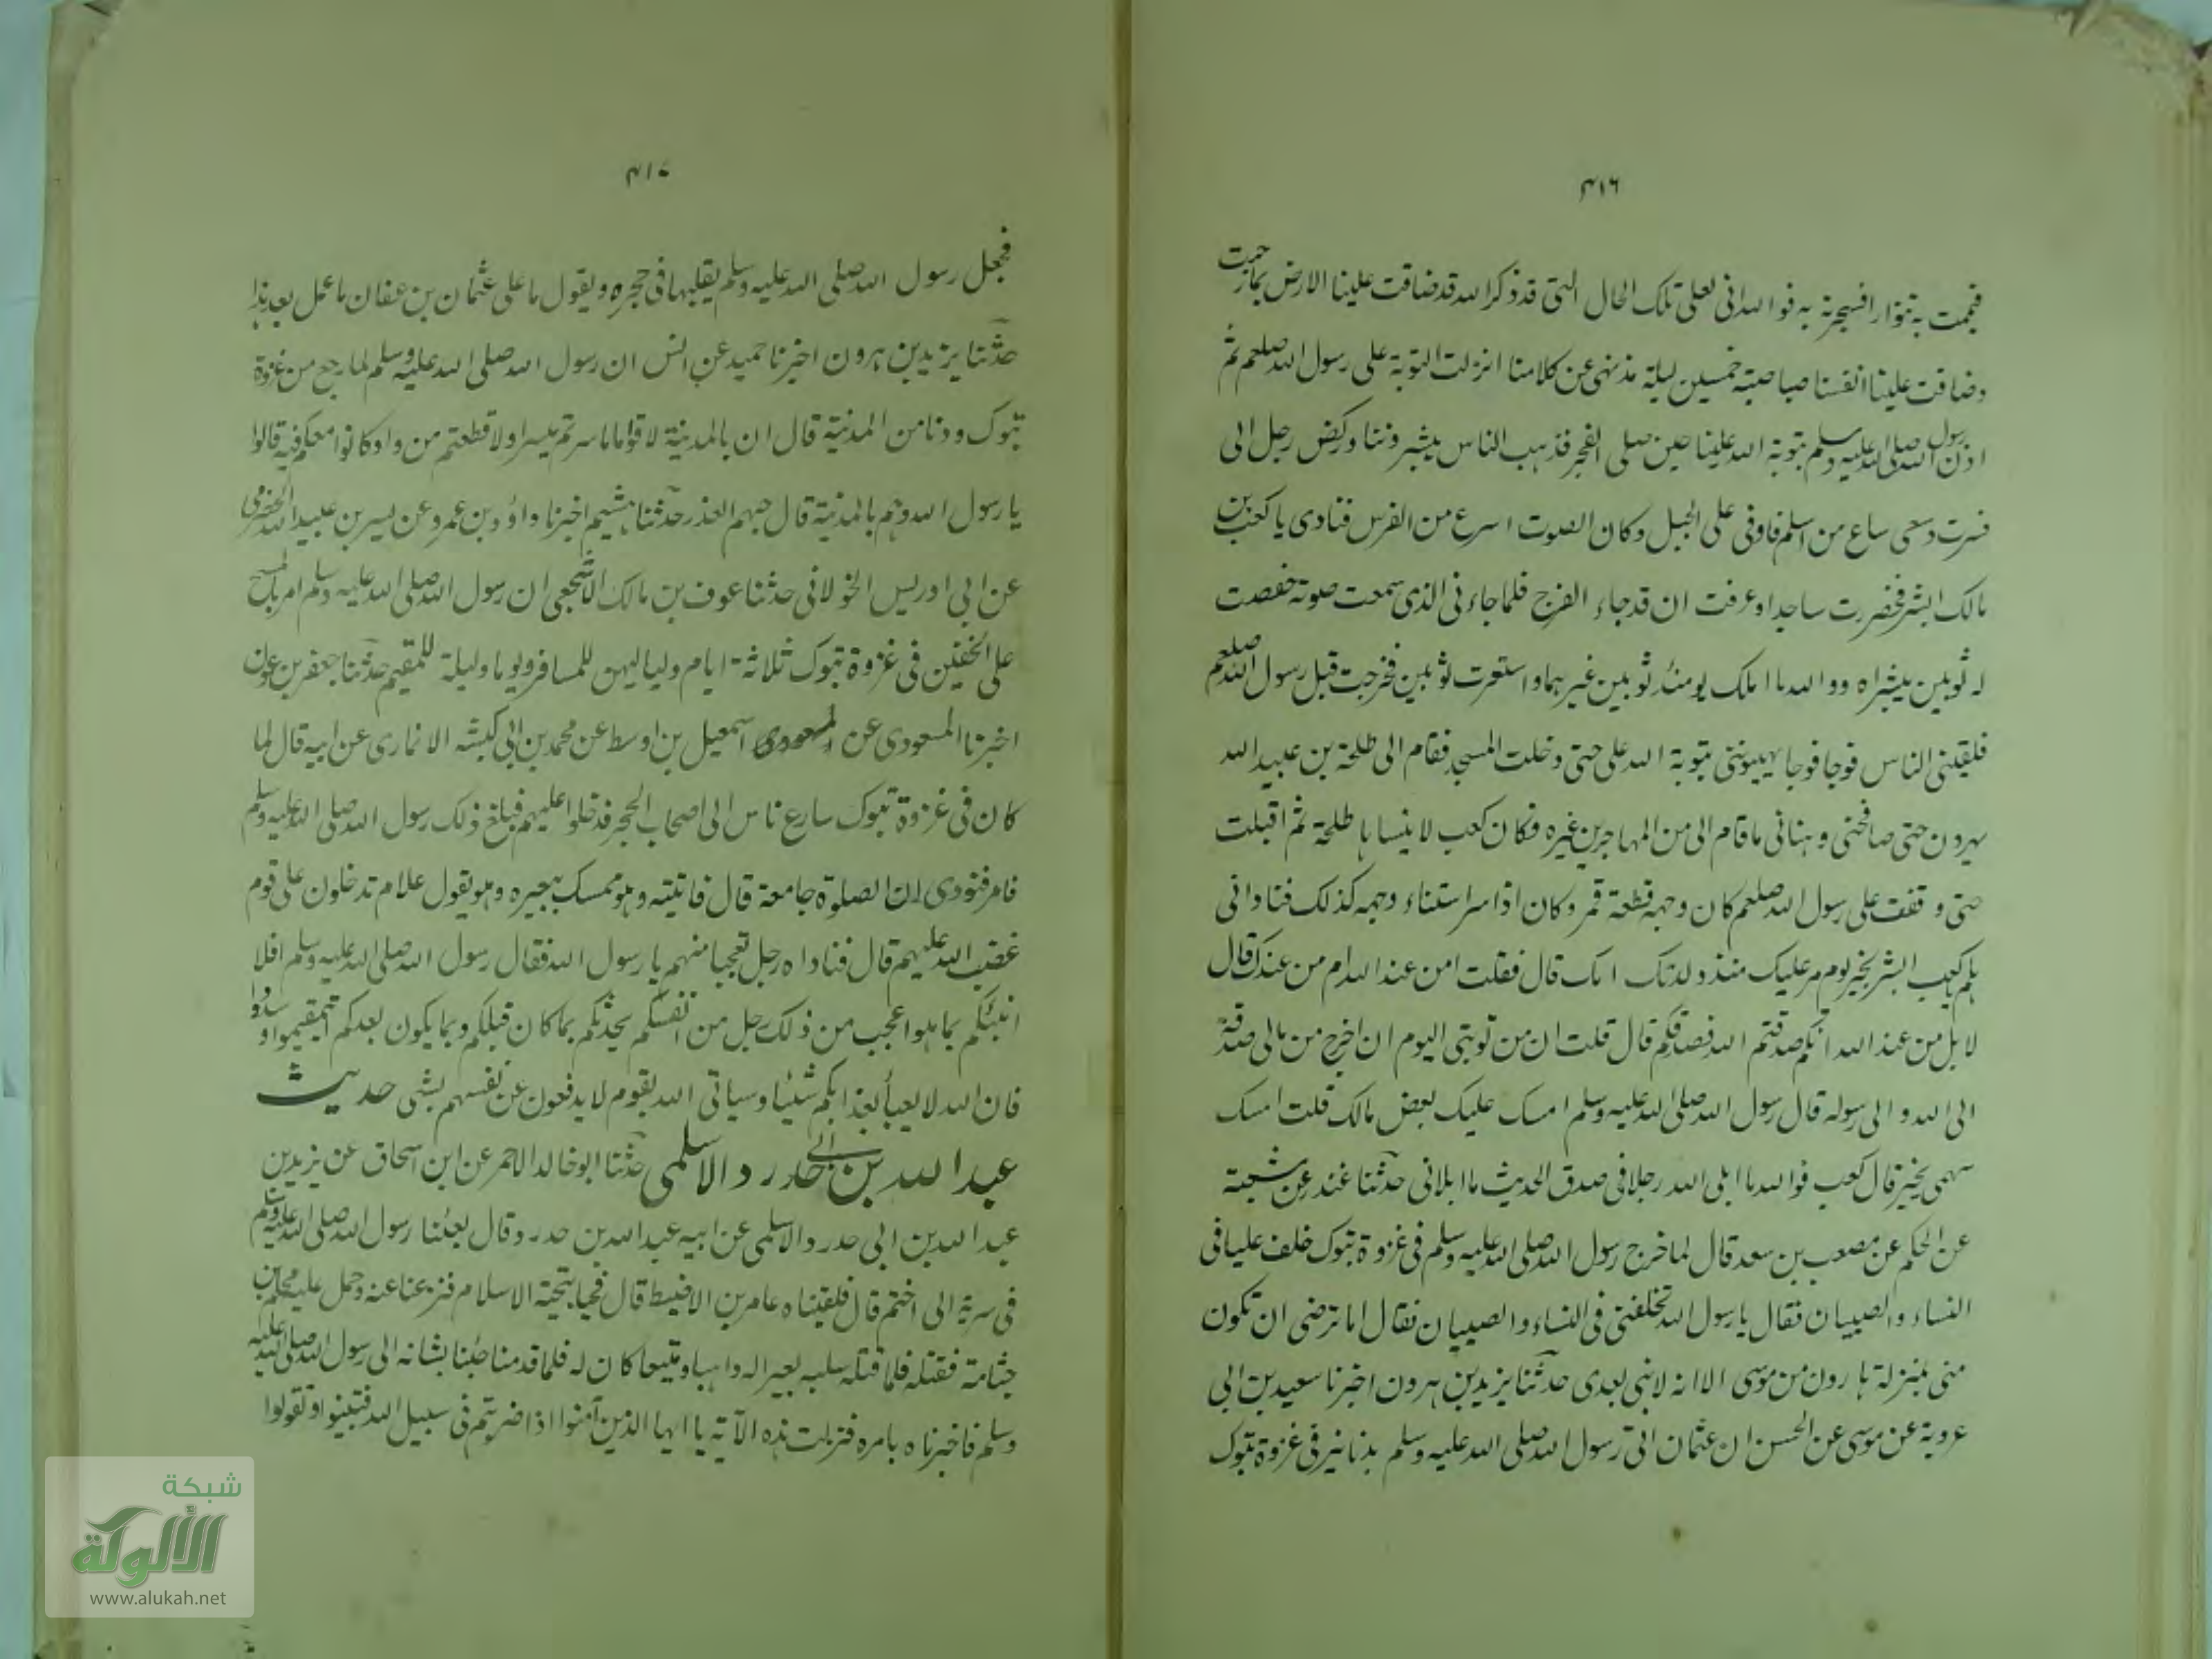 ٤١٦
فيممت به تنورا فسجرته به فوالله انى لعلى تلك الحال التى قد ذكر الله قد ضاقت علينا الارض بما رحبت
وضاقت علينا انفسنا صباحية خمسين ليلة مذ نهى عن كلامنا انزلت التوبة على رسول الله صلعم ثم
اذن رسول الله صلى الله عليه وسلم بتوبة الله علينا حين صلى الفجر فذهب الناس يبشروننا وركض رجل الى
فرس وسعى ساع من اسلم فاوفى على الجبل وكان الصوت اسرع من الفرس فنادى يا كعب بن
مالك ابشر فخررت ساجدا وعرفت ان قد جاء الفرج فلما جاءنى الذى سمعت صوته خفصت
له ثوبين ببشراه ووالله ما املك يومئذ ثوبين غيرهما واستعرت ثوبين فخرجت قبل رسول الله صلعم
فلقينى الناس فوجا فوجا يهنونى بتوبة الله على حتى دخلت المسجد فقام الى طلحة بن عبيد الله
يهرون حتى صافحنى وهنانى ما قام الى من المهاجرين غيره فكان كعب لا ينساها طلحة ثم اقبلت
حتى وقفت على رسول الله صلعم كان وجهه قطعة قمر وكان اذا سر استناء وجهه كذلك فنادانى
هلم يا كعب ابشر بخير يوم مر عليك منذ ولدتك امك قال فقلت امن عند الله ام من عندك قال
لا بل من عند الله انكم صدقتم الله فصدقكم قال قلت ان من توبتى اليوم ان اخرج من مالى صدقة
الى الله والى رسوله قال رسول الله صلى الله عليه وسلم امسك عليك بعض مالك قلت امسك
سهمى بخير قال كعب فوالله ما ابلى الله رجلا فى صدق الحديث ما ابلانى حدثنا غندر عن شعبة
عن الحكم عن مصعب بن سعد قال لما خرج رسول الله صلى الله عليه وسلم فى غزوة تبوك خلف عليا فى
النساء والصبيان فقال يا رسول الله تخلفنى فى النساء والصبيان فقال اما ترضى ان تكون
منى بمنزلة هارون من موسى الا انه لا نبى بعدى حدثنا يزيد بن هرون اخبرنا سعيد بن ابى
عروبة عن موسى عن الحسن ان عثمان اتى رسول الله صلى الله عليه وسلم بدنانير فى غزوة تبوك
٤١٧
فجعل رسول الله صلى الله عليه وسلم يقلبها فى حجره ويقول ما على عثمان بن عفان ما عمل بعد هذا
حدثنا يزيد بن هرون اخبرنا حميد عن انس ان رسول الله صلى الله عليه وسلم لما رجع من غزوة
تبوك ودنا من المدينة قال ان بالمدينة لاقواما ما سرتم مسيرا ولا قطعتم من واد وكانوا معكم فيه قالوا
يا رسول الله وهم بالمدينة قال حبسهم العذر حدثنا هشيم اخبرنا داؤد بن عمرو عن بسر بن عبيد الله الحضرمى
عن ابى ادريس الخولانى حدثنا عوف بن مالك الاشجعى ان رسول الله صلى الله عليه وسلم امر بالمسح
على الخفين فى غزوة تبوك ثلاثة ايام ولياليهن للمسافر ويوما وليلة للمقيم حدثنا جعفر بن عون
اخبرنا المسعودى عن اسمعيل بن اوسط عن محمد بن ابى كبشه الانمارى عن ابيه قال لما
كان فى غزوة تبوك سارع ناس الى اصحاب الحجر فدخلوا عليهم فبلغ ذلك رسول الله صلى الله عليه وسلم
فامر فنودى ان الصلوة جامعة قال فاتيته وهو ممسك ببعيره وهو يقول علام تدخلون على قوم
غضب الله عليهم قال فناداه رجل تعجبا منهم يا رسول الله فقال رسول الله صلى الله عليه وسلم افلا
انبئكم بما هو اعجب من ذلك رجل من انفسكم يحدثكم بما كان قبلكم وبما يكون بعدكم استقيموا وسددوا
فان الله لا يعبأ بعذابكم شئيا وسياتى الله بقوم لا يدفعون عن نفسهم بشى حديث
عبد الله بن ابى حدرد الاسلمى حدثنا ابو خالد الاحمر عن ابن اسحاق عن يزيد بن
عبد الله بن ابى حدرد الاسلمى عن ابيه عبد الله بن حدرد قال بعثنا رسول الله صلى الله عليه وسلم
فى سرية الى اضم قال فلقيناه عامر بن الاضبط قال فحيا بتحية الاسلام فنزعنا عنه وحمل عليه محلم بن
جثامة فقتله فلما قتله سلبه بعيرا له واهبا ومتيعا كان له فلما قدمنا جئنا بشانه الى رسول الله صلى الله عليه
وسلم فاخبرناه بامره فنزلت هذه الآية يا ايها الذين آمنوا اذا ضربتم فى سبيل الله فتبينوا وتقولوا
شبكة
الألوكة
www.alukah.net